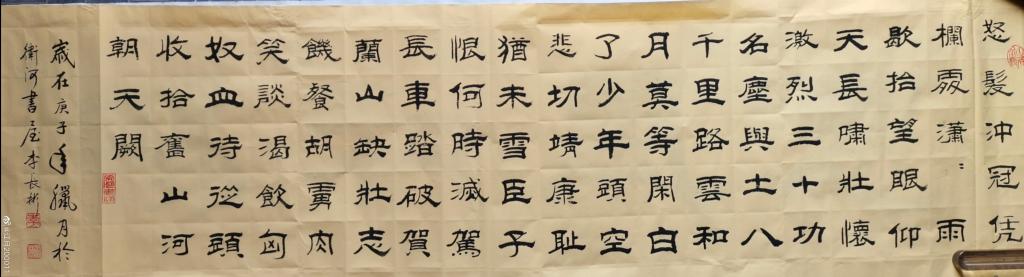 怒髮沖冠凭
欄處瀟〻雨
歇抬望眼仰
天長嘯壯懷
激烈三十功
名塵與土八
千里路雲和
月莫等閑白
了少年頭空
悲切靖康恥
猶未雪臣子
恨何時滅駕
長車踏破賀
蘭山缺壯志
饑餐胡虜肉
笑談渴飲匈
奴血待從頭
收拾舊山河
朝天闕
歲在庚子年臘月於
衛河書屋李長彬